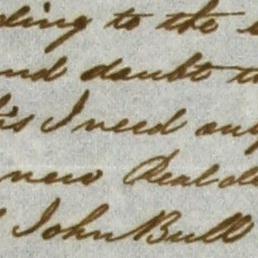 ding to the
and doubt
his I need any
new Real
John Bull